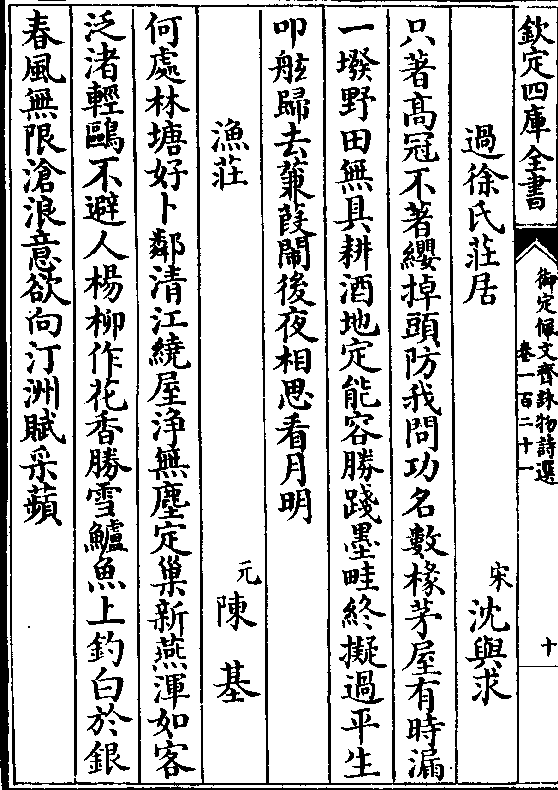 欽定四庫全書
御定佩文齋詠物詩選
卷一百二十一
十
過徐氏莊居
宋
沈與求
只著高冠不著纓掉頭防我問功名數椽茅屋有時漏
一墢野田無具耕酒地定能容勝踐墨畦終擬過平生
叩舷歸去蒹葭鬧後夜相思看月明
漁莊
元
陳基
何處林塘好卜鄰清江繞屋浄無塵定巢新燕渾如客
泛渚輕鷗不避人楊柳作花香勝雪鱸魚上釣白於銀
春風無限滄浪意欲向汀洲賦采蘋